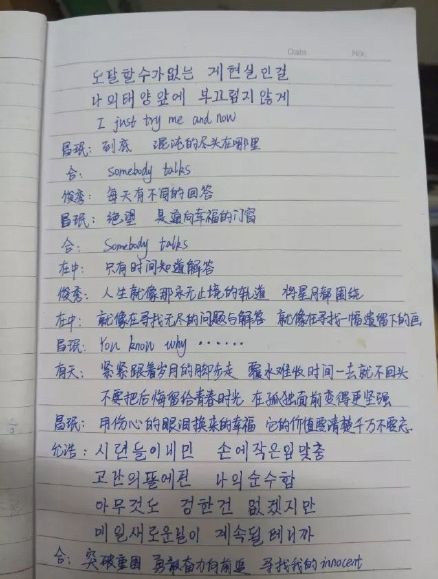 Date No.
도달할수가없는 게현실인걸
나의태양앞에 부끄럽지않게
I just try me and now
昌珉: 到底 混沌的尽头在哪里
合: Somebody talks
俊秀: 每天有不同的回答
昌珉: 绝望 是通向幸福的门窗
合: Somebody talks
在中: 只有时间知道解答
俊秀: 人生就像那永无止境的轨道 将星月都围绕
在中: 就像在寻找无尽的问题与解答 就像在寻找一幅遗留下的画
昌珉: You know why ······
有天: 紧紧跟着岁月的脚步走 覆水难收时间一去就不回头
不要把后悔留给青春时光 在孤独面前变得更坚强
昌珉: 用伤心的眼泪换来的幸福 它的价值要清楚千万不要忘
允浩: 시련들이내민 손에작은입맞춤
고난의품에전 나의순수함
아무것도 정한건 없겠지만
매일새로운일이 계속될테니까
合: 突破重围 勇敢奋力向前要 寻找我的innocent